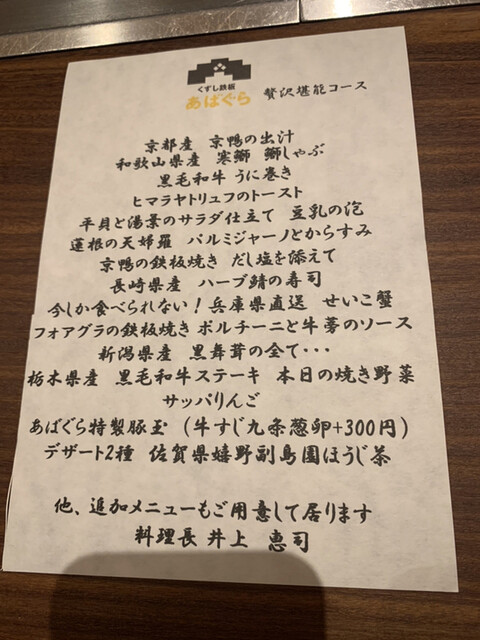 くずし鉄板
あばぐら 贅沢堪能コース
京都産 京鴨の出汁
和歌山県産 寒鰤 鰤しゃぶ
黒毛和牛 うに巻き
ヒマラヤトリュフのトースト
平貝と湯景のサラダ仕立て 豆乳の泡
蓮根の天婦羅 パルミジャーノとからすみ
京鴨の鉄板焼き だし塩を添えて
長崎県産 ハーブ鯖の寿司
今しか食べられない!兵庫県直送 せいこ蟹
フォアグラの鉄板焼き ポルチーニと牛蒡のソース
新潟県産 黒舞茸の全て・・・
栃木県産 黒毛和牛ステーキ 本日の焼き野菜
サッパりんご
あばぐら特製豚玉(牛すじ九条葱卵+300円)
デザート2種 佐賀県嬉野副島園ほうじ茶
他、追加メニューもご用意して居ります
料理長 井上 恵司